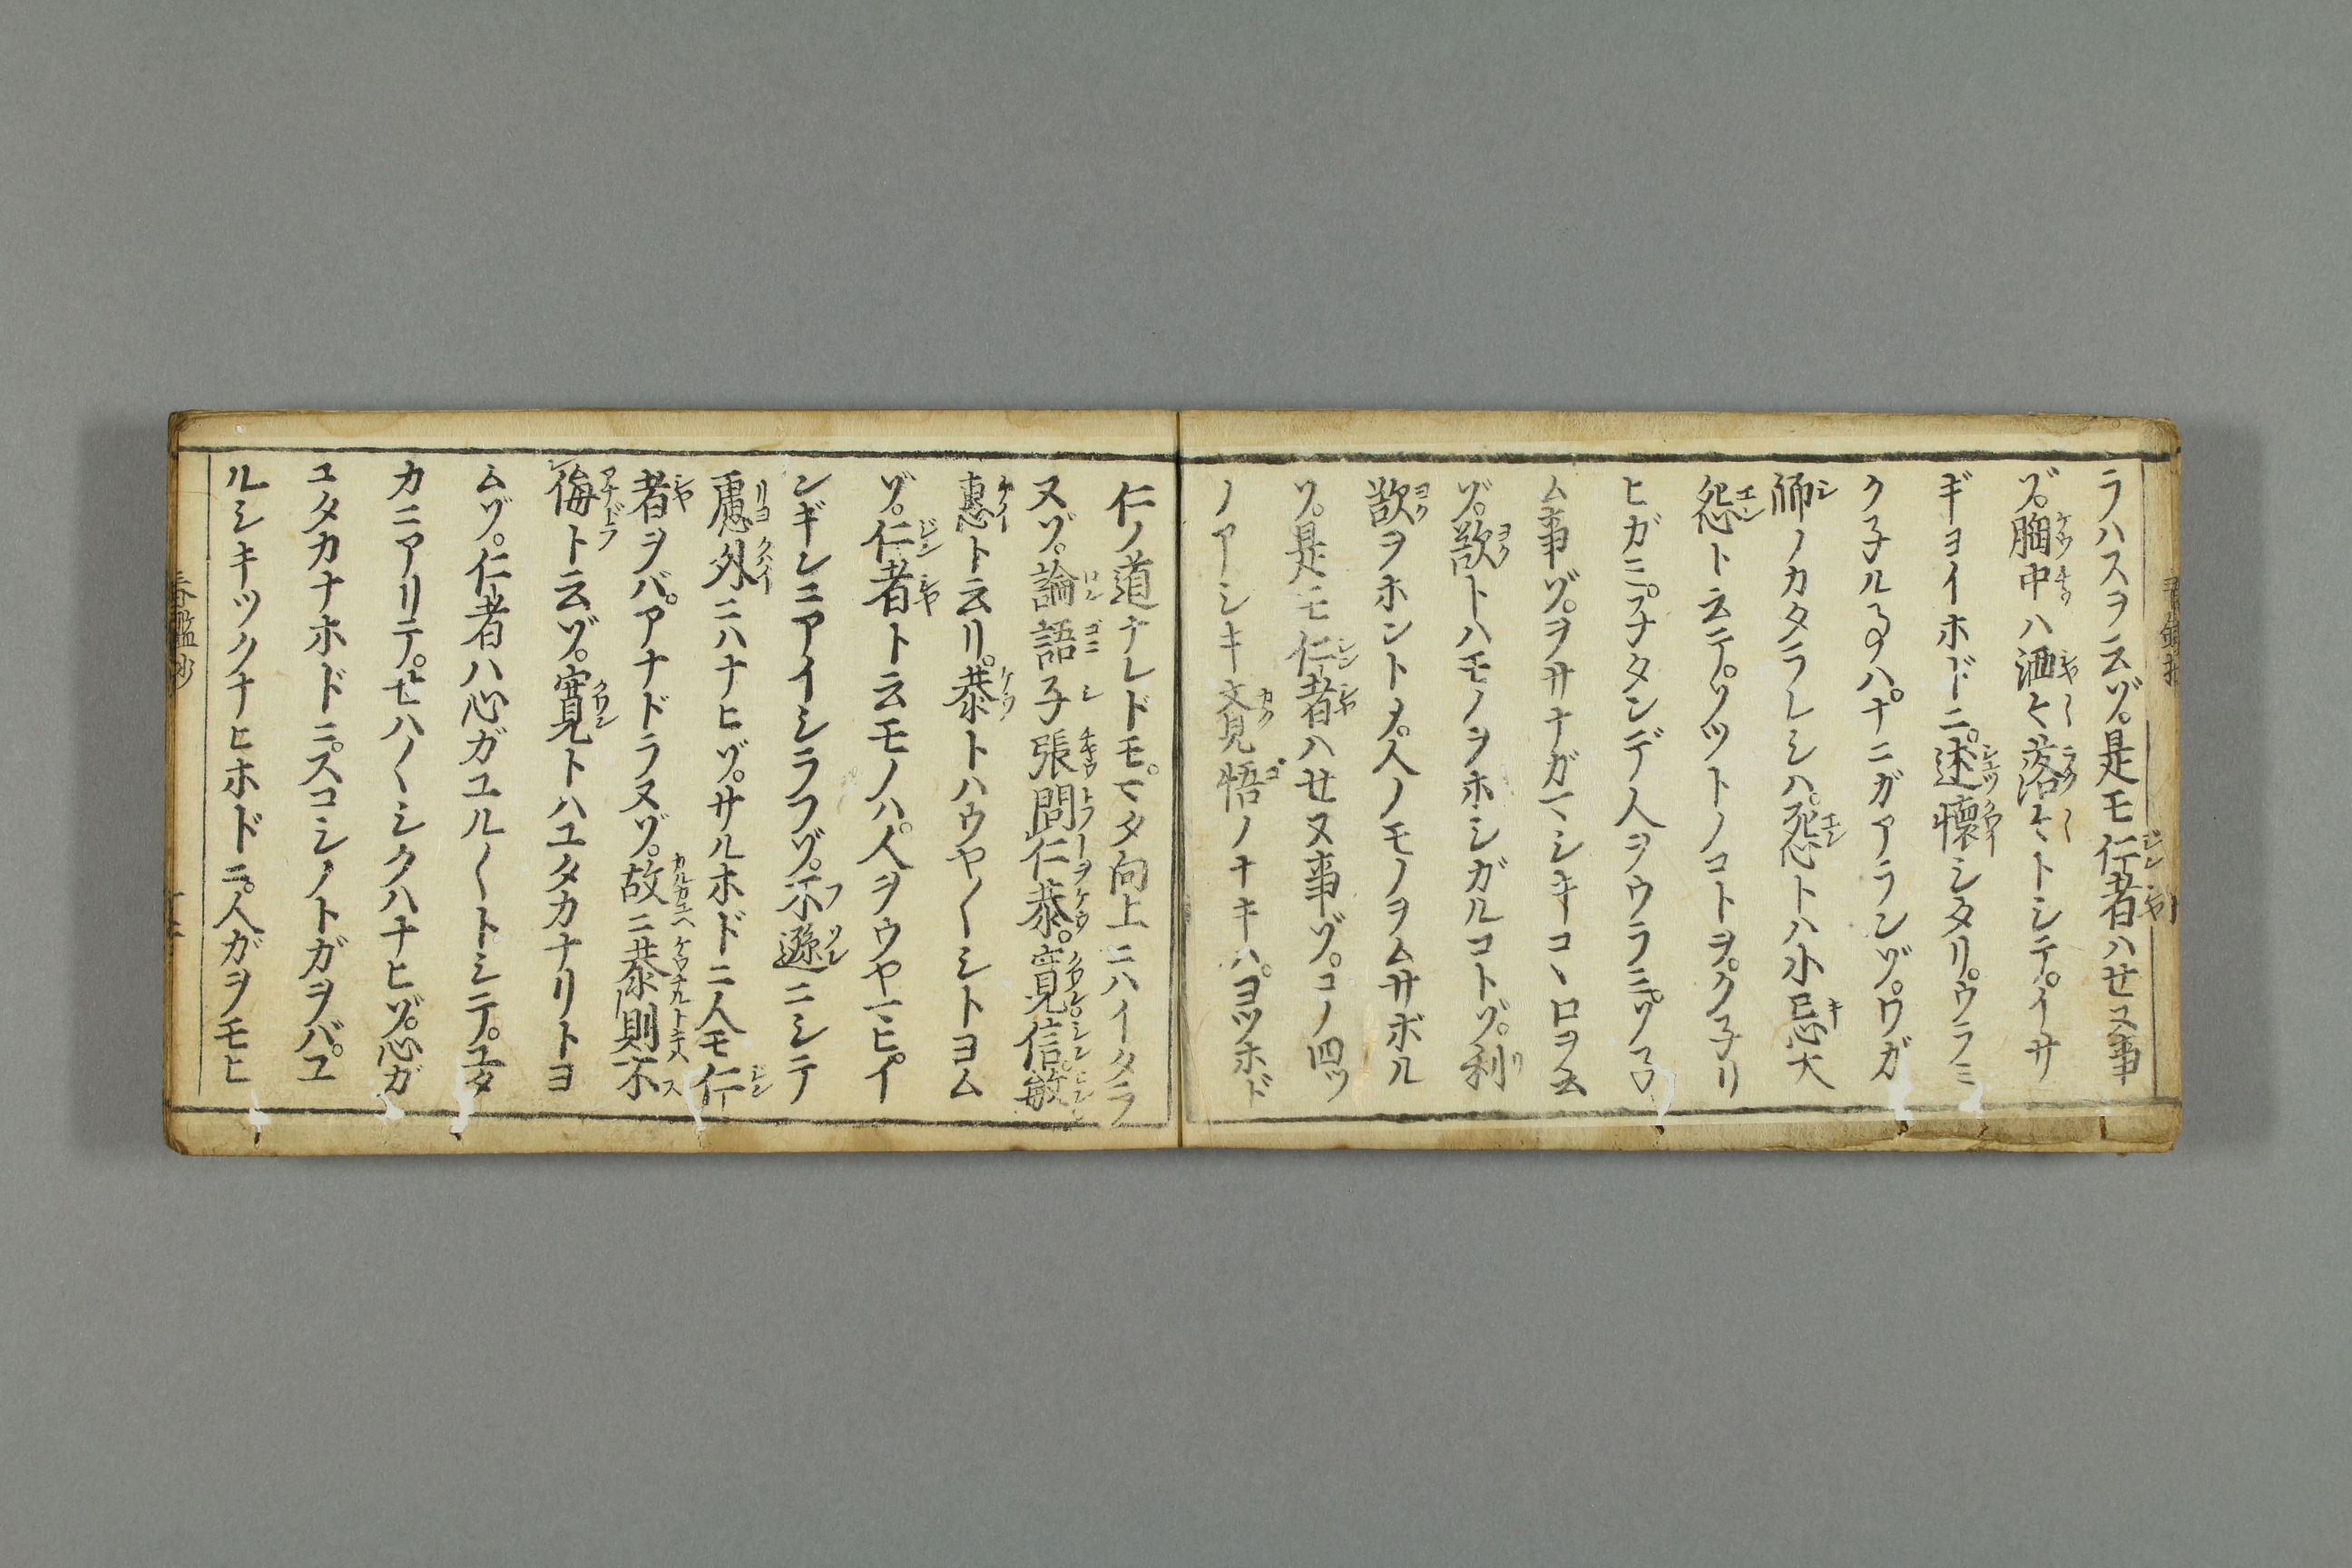 ラハスヲ云ゾ。是モ仁者ハせヌ事
ゾ。胸中ハ洒々落々トシテ。イサ
ギヨイホドニ。述懷シタリ。ウラミ
ク子ルヿハ。ナニガアランゾ。ワガ
師ノカタラレシハ。怨トハ小忌大
怨ト云テ。ソツトノコトヲ。ク子リ
ヒガミ。フナタンデ人ヲウラミ。ソ子
ム事ゾ。ヲサナガマシキコヽロヲ云
ゾ。欲トハモノヲホシガルコトゾ。利
欲ヲホントメ。人ノモノヲムサボル
ゾ。是モ仁者ハせヌ事ゾ。コノ四ツ
ノアシキ覚悟ノナキハ。ヨツホド
仁ノ道ナレドモ。マタ向上ニハイタラ
ヌゾ。論語子張問仁恭。寛信。敏
惠ト云リ。恭トハウヤ〱シトヨム
ゾ。仁者ト云モノハ。人ヲウヤマヒ。イ
ンギンニアイシラフゾ。不遜ニシテ
慮外ニハナヒゾ。サルホドニ人モ仁
者ヲバ。アナドラヌゾ。故ニ恭則不
侮ト云ゾ。寛トハユタカナリトヨ
ムゾ。仁者ハ心ガユル〱トシテ。ユタ
カニアリテ。せハ〱シクハナヒゾ。心ガ
ユタカナホドニ。スコシノトガヲバ。ユ
ルシキツクナヒホドニ。人ガヲモヒ